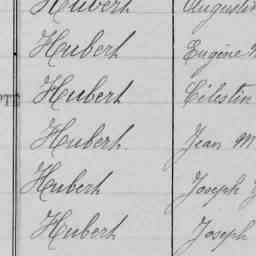 Hubert Augustin
Hubert Eugène
Hubert Célestin
Hubert Jean M
Hubert Joseph
Hubert Joseph